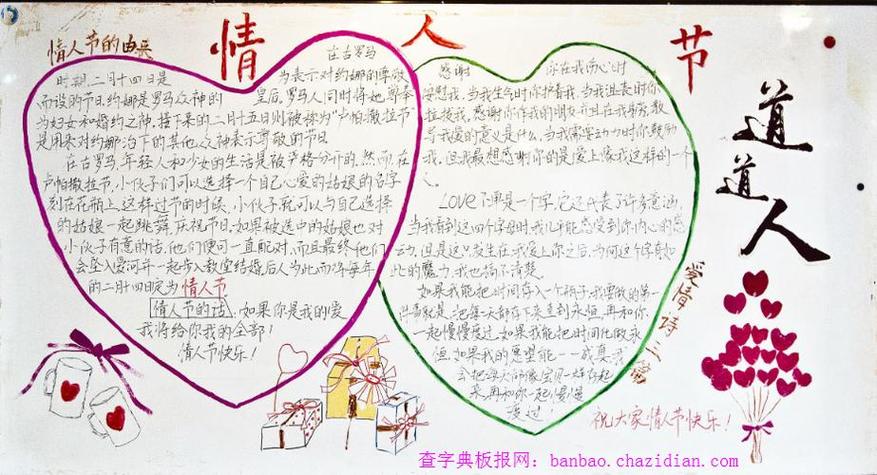 情人节
道道人
情人节的由来
在古罗马
时期,二月十四日是
为表示对约娜的尊敬
而设的节日约娜是罗马众神的
皇后,罗马人同时将她尊奉
为妇女和婚约之神,接下来的二月十五日则被称为“卢帕撒拉节”
是用来对约娜治下的其他众神表示尊敬的节日
在古罗马,年轻人和少女的生活是被严格分开的,然而,在
卢帕撒拉节,小伙子们可以选择一个自己心爱的姑娘的名字
刻在花瓶上,这样过节的时候,小伙子就可以与自己选择
的姑娘一起跳舞,庆祝节日,如果被选中的姑娘也对
小伙子有意的话,他们便可一直配对,而且最终他们
会坠入爱河并一起步入教堂结婚后人为此而将每年
的二月十四日定为情人节
情人节的话,如果你是我的爱
我将给你我的全部!
情人节快乐!
感谢
你在我伤心时
安慰我,当我生气时你护着我,当我沮丧时你
拉拔我,感谢你作我的朋友并且在我身旁,教
导我爱的意义是什么,当我需要动力时你鼓励
我,但我最想感谢你的是爱上像我这样的一个
人。
Love不单是一个字,它还代表了许多意涵,
当我看到这四个字母时我几乎能感受到你内心的感
动,但是这只发生在我爱上你之后,为何这个字有如
此的魔力,我也搞不清楚。
如果我能把时间存入一个瓶子,我要做的第一
件事就是,把每一天都存下来直到永恒,再和你
一起慢慢度过,如果我能把时间化做永
恒,如果我的愿望能一一成真,
会把每天都像宝贝一样存起
来,再和你一起慢慢
度过!
爱情诗三篇
祝大家情人节快乐!
查字典板报网:banbao.chazidian.com